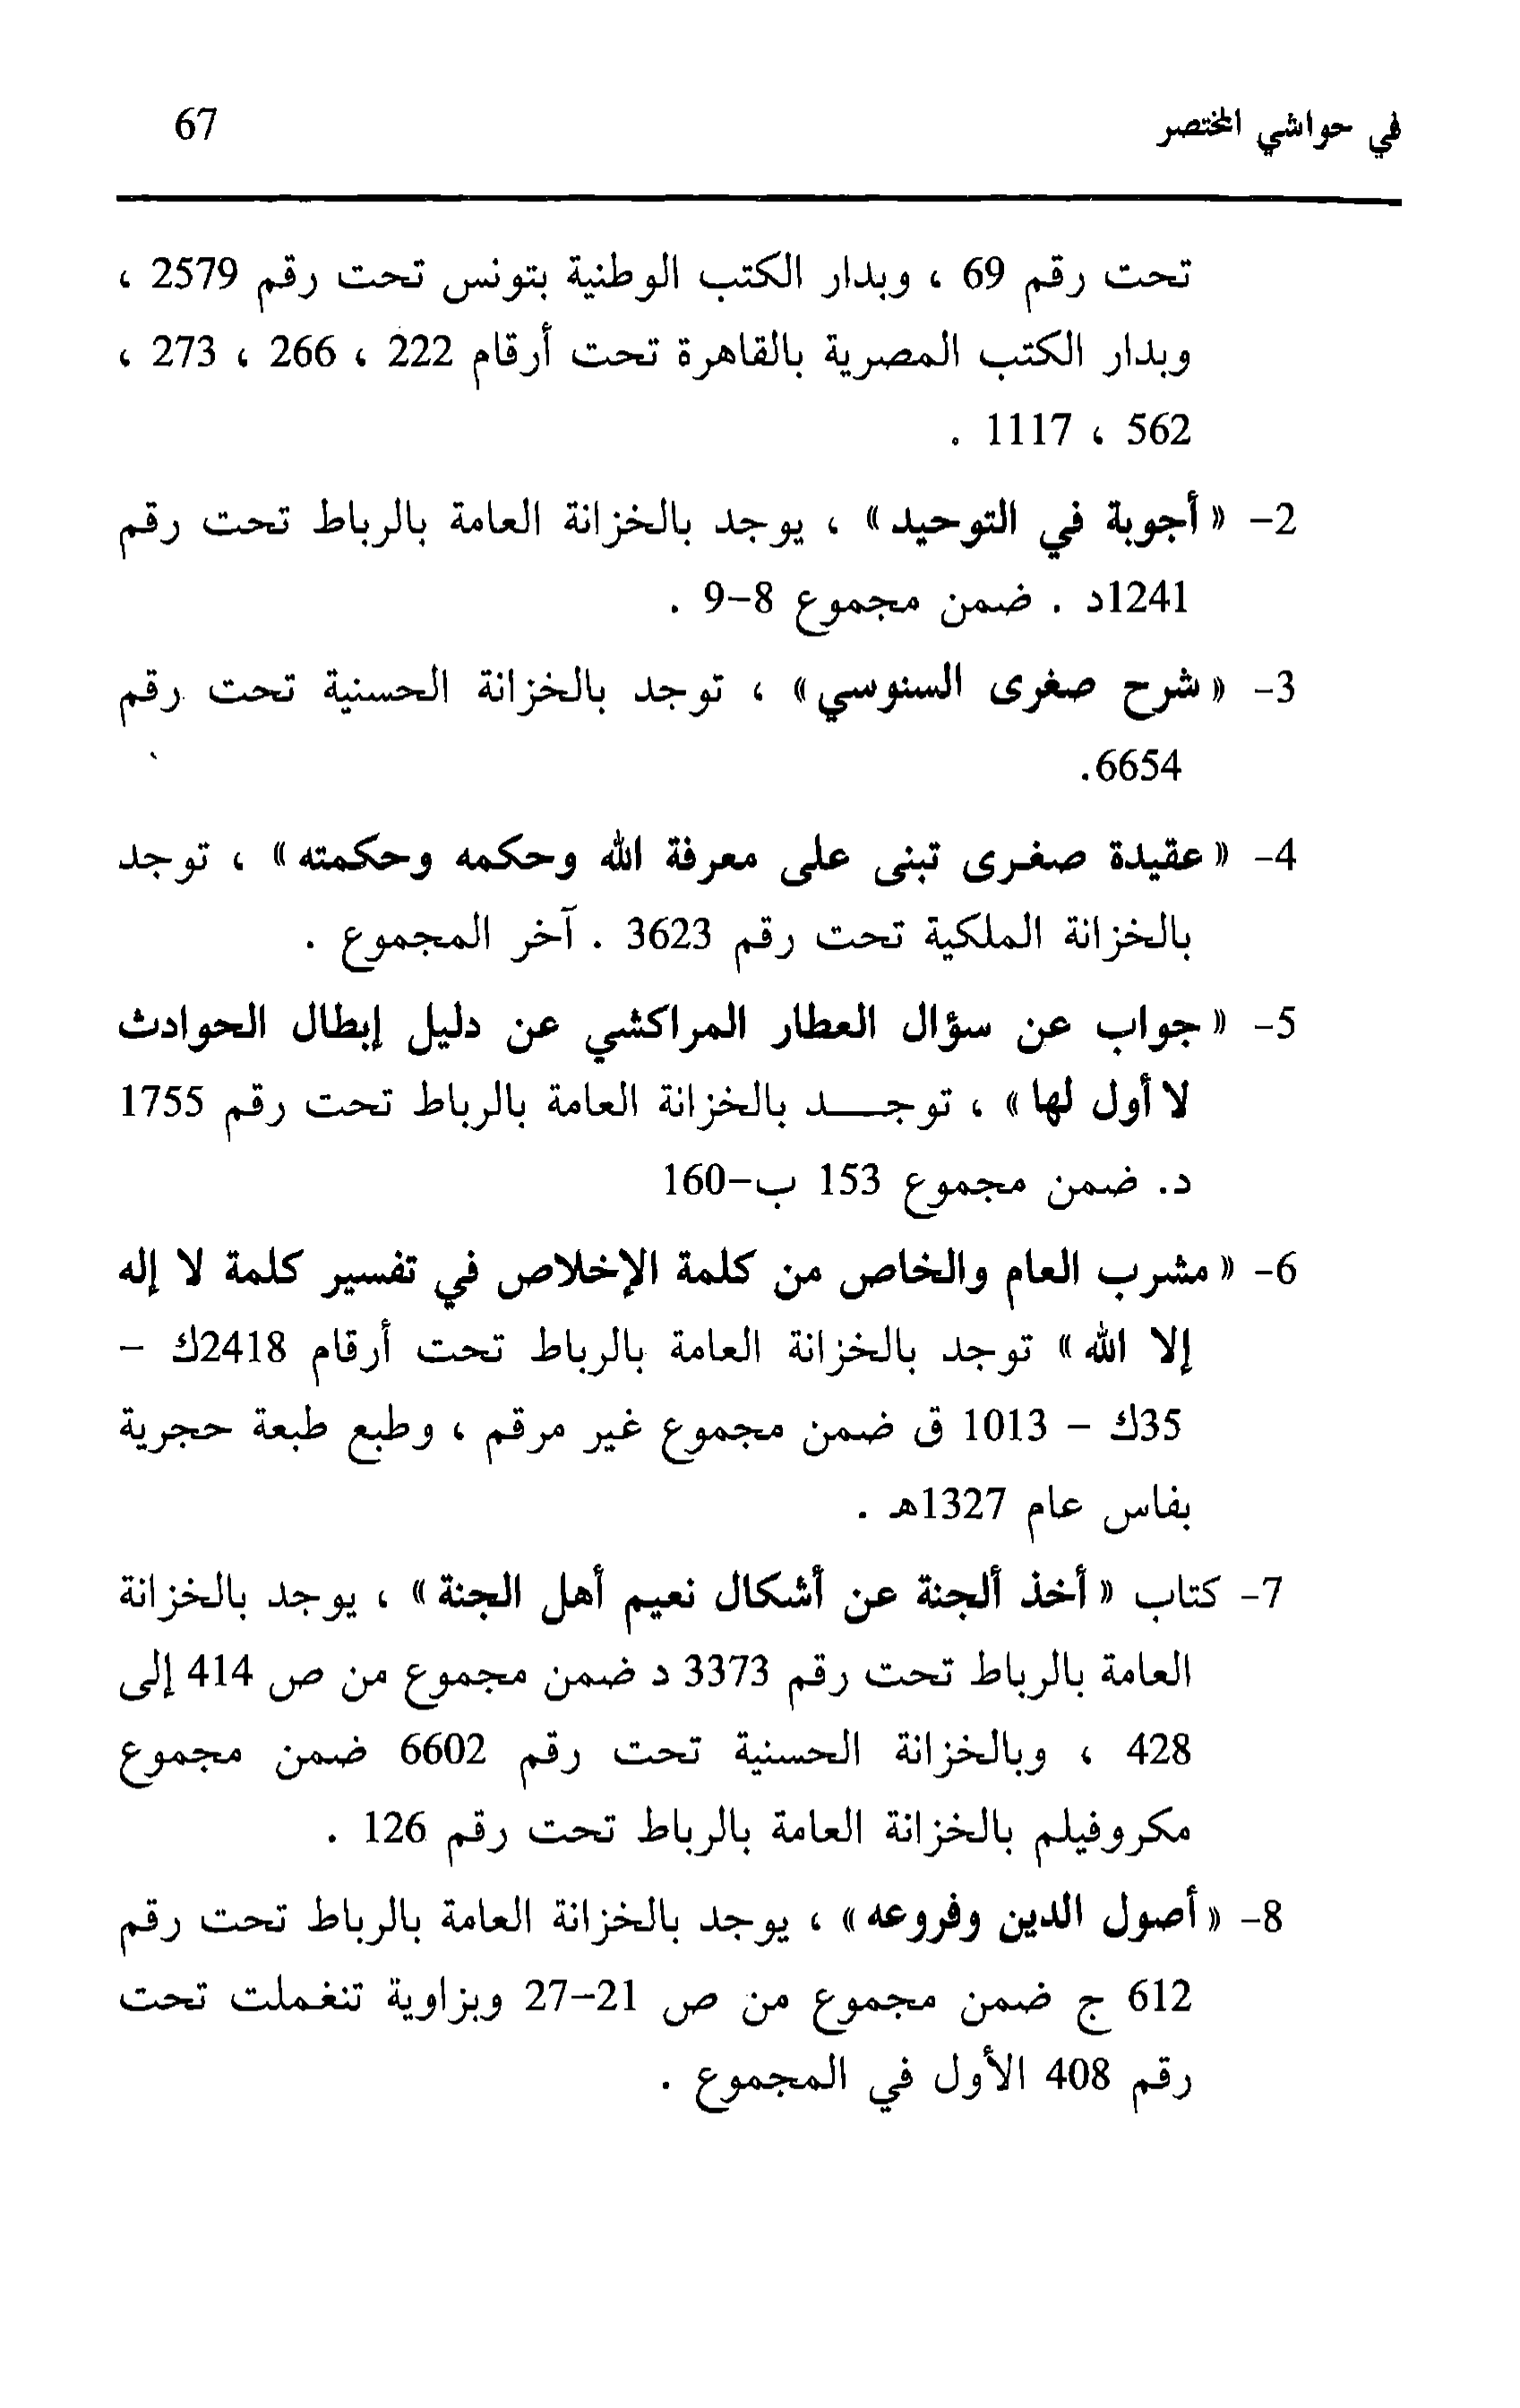 في حواشي المختصر 67
تحت رقم 69 ، وبدار الكتب الوطنية بتونس تحت رقم 2579 ،
وبدار الكتب المصرية بالقاهرة تحت أرقام 222 ، 266 ، 273 ،
562 ، 1117 .
2- « أجوبة في التوحيد » ، يوجد بالخزانة العامة بالرباط تحت رقم
1241د . ضمن مجموع 8-9 .
3- « شرح صغرى السنوسي » ، توجد بالخزانة الحسنية تحت رقم
6654.
4- « عقيدة صغرى تبنى على معرفة الله وحكمه وحكمته » ، توجد
بالخزانة الملكية تحت رقم 3623 . آخر المجموع .
5- « جواب عن سؤال العطار المراكشي عن دليل إبطال الحوادث
لا أول لها » ، توجـــد بالخزانة العامة بالرباط تحت رقم 1755
د. ضمن مجموع 153 ب-160
6- « مشرب العام والخاص من كلمة الإخلاص في تفسير كلمة لا إله
إلا الله » توجد بالخزانة العامة بالرباط تحت أرقام 2418ك -
35ك - 1013 ق ضمن مجموع غير مرقم ، وطبع طبعة حجرية
بفاس عام 1327هـ .
7- كتاب « أخذ ألجنة عن أشكال نعيم أهل الجنة » ، يوجد بالخزانة
العامة بالرباط تحت رقم 3373 د ضمن مجموع من ص 414 إلى
428 ، وبالخزانة الحسنية تحت رقم 6602 ضمن مجموع
مكروفيلم بالخزانة العامة بالرباط تحت رقم 126 .
8- « أصول الدين وفروعه » ، يوجد بالخزانة العامة بالرباط تحت رقم
612 ج ضمن مجموع من ص 21-27 وبزاوية تنغملت تحت
رقم 408 الأول في المجموع .